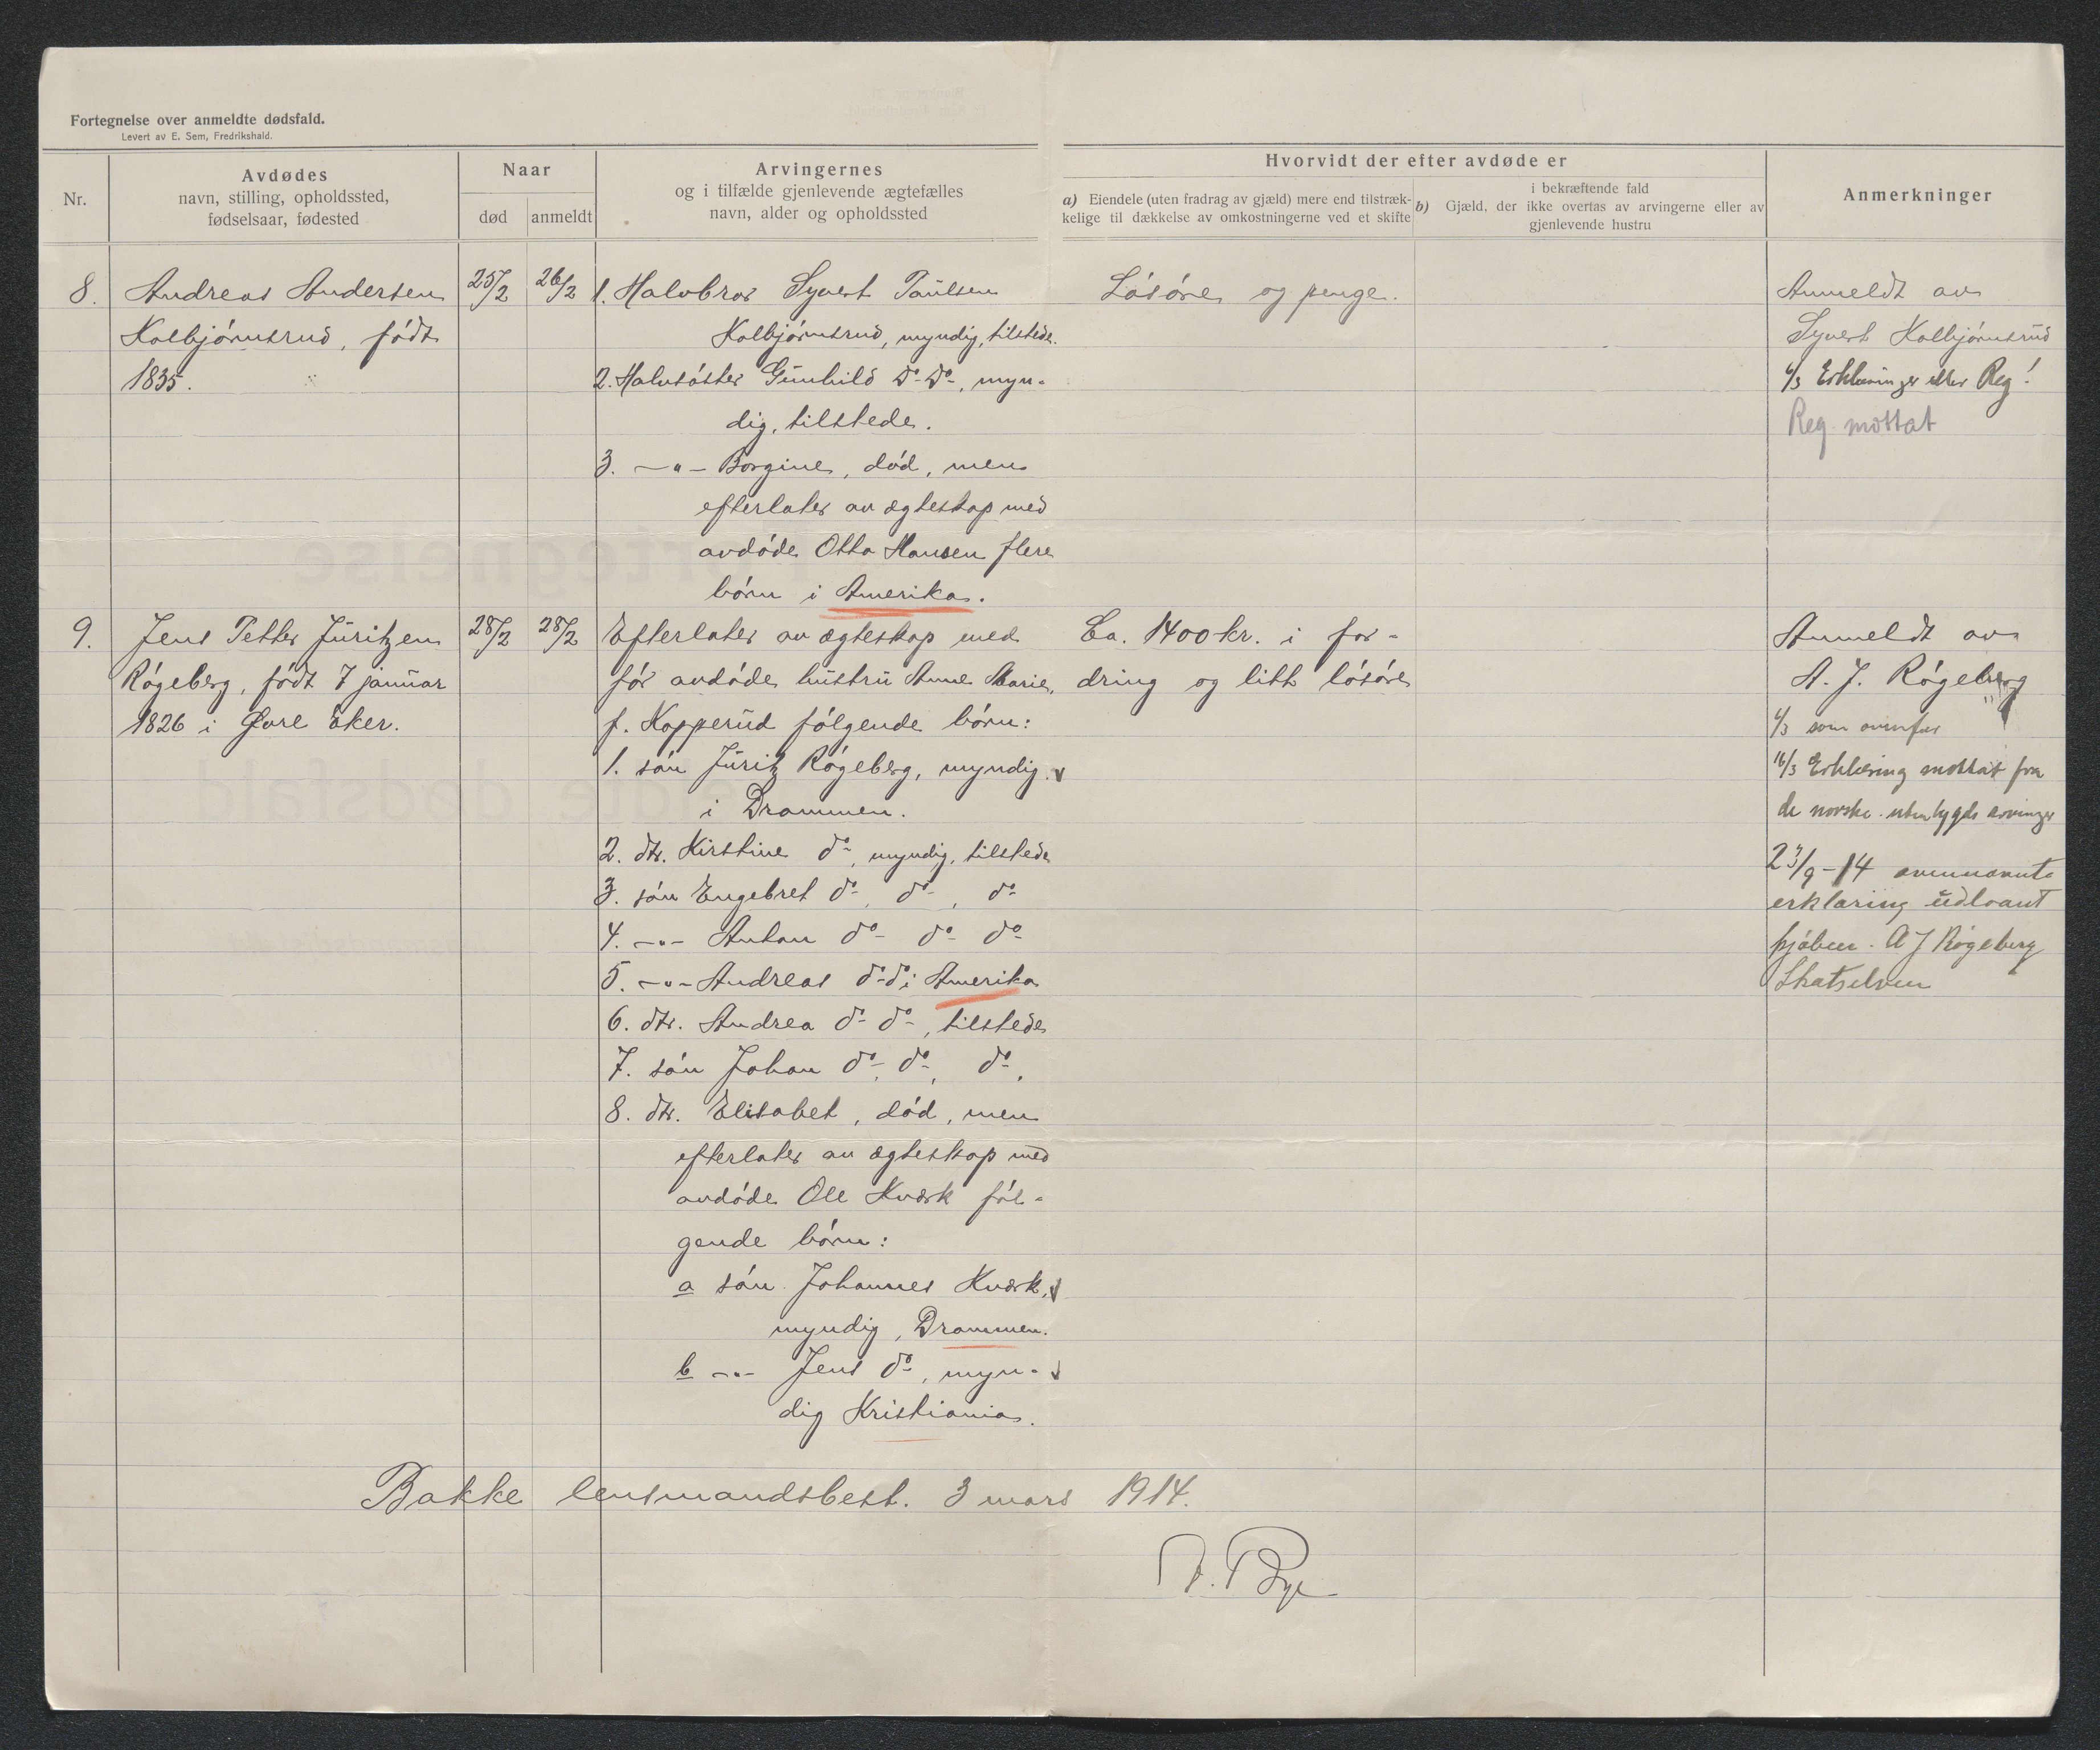 Fortegnelse over anmeldte dødsfald.
Levert av E. Sem, Fredrikshald.
Nr.
Avdødes
navn, stilling, opholdssted,
fødselsaar, fødested
Naar
død
anmeldt
Arvingernes
og i tilfælde gjenlevende ægtefælles
navn, alder og opholdssted
Hvorvidt der efter avdøde er
a) Eiendele (uten fradrag av gjæld) mere end tilstræk-
kelige til dækkelse av omkostningerne ved et skifte
i bekræftende fald
b) Gjæld, der ikke overtas av arvingerne eller av
gjenlevende hustru
Anmerkninger
8.
Andreas Andersen
Kolbjørnsrud, født
1835.
25/2
26/2
1. Halvbror Syvert Paulsen
Kolbjørnsrud, myndig, tilstede.
2. Halvsøster Gunhild do do, myn-
dig, tilstede.
3. —"— Borgine, død, men
efterlater av ægteskap med
avdøde Otto Hansen flere
børn i Amerika.
Løsøre og penge.
Anmeldt av
Syvert Kolbjørnsrud
4/3 Erklæringer eller Reg!
Reg. mottat
9.
Jens Petter Juritzen
Røgeberg, født 7 januar
1826 i Øvre Eker.
28/2
28/2
Efterlater av ægteskap med
før avdøde hustru Anne Marie,
f. Kopperud følgende børn:
1. søn Juritz Røgeberg, myndig.
i Drammen.
2. dtr. Kirstine do, myndig, tilstede
3. søn Engebret do, do, do
4. —"— Anton do do do
5. —"— Andreas do do i Amerika
6. dtr. Andrea do do, tilstede
7. søn Johan do, do, do,
8. dtr. Elisabet, død, men
efterlater av ægteskap med
avdøde Ole Kværk føl-
gende børn:
a søn Johannes Kværk,
myndig, Drammen.
b —"— Jens do, myn-
dig Kristiania.
Ca. 1400 kr. i for-
dring og litt løsøre
Anmeldt av
A. J. Røgeberg
4/3 som ovenfor
16/3 Erklæring mottat fra
de norske utenbygds arvinger
23/9-14 ovennævnte
erklæring udlaant
A J Røgeberg
Skotselven
Bakke lensmandsbest. 3 mars 1914.
Bye